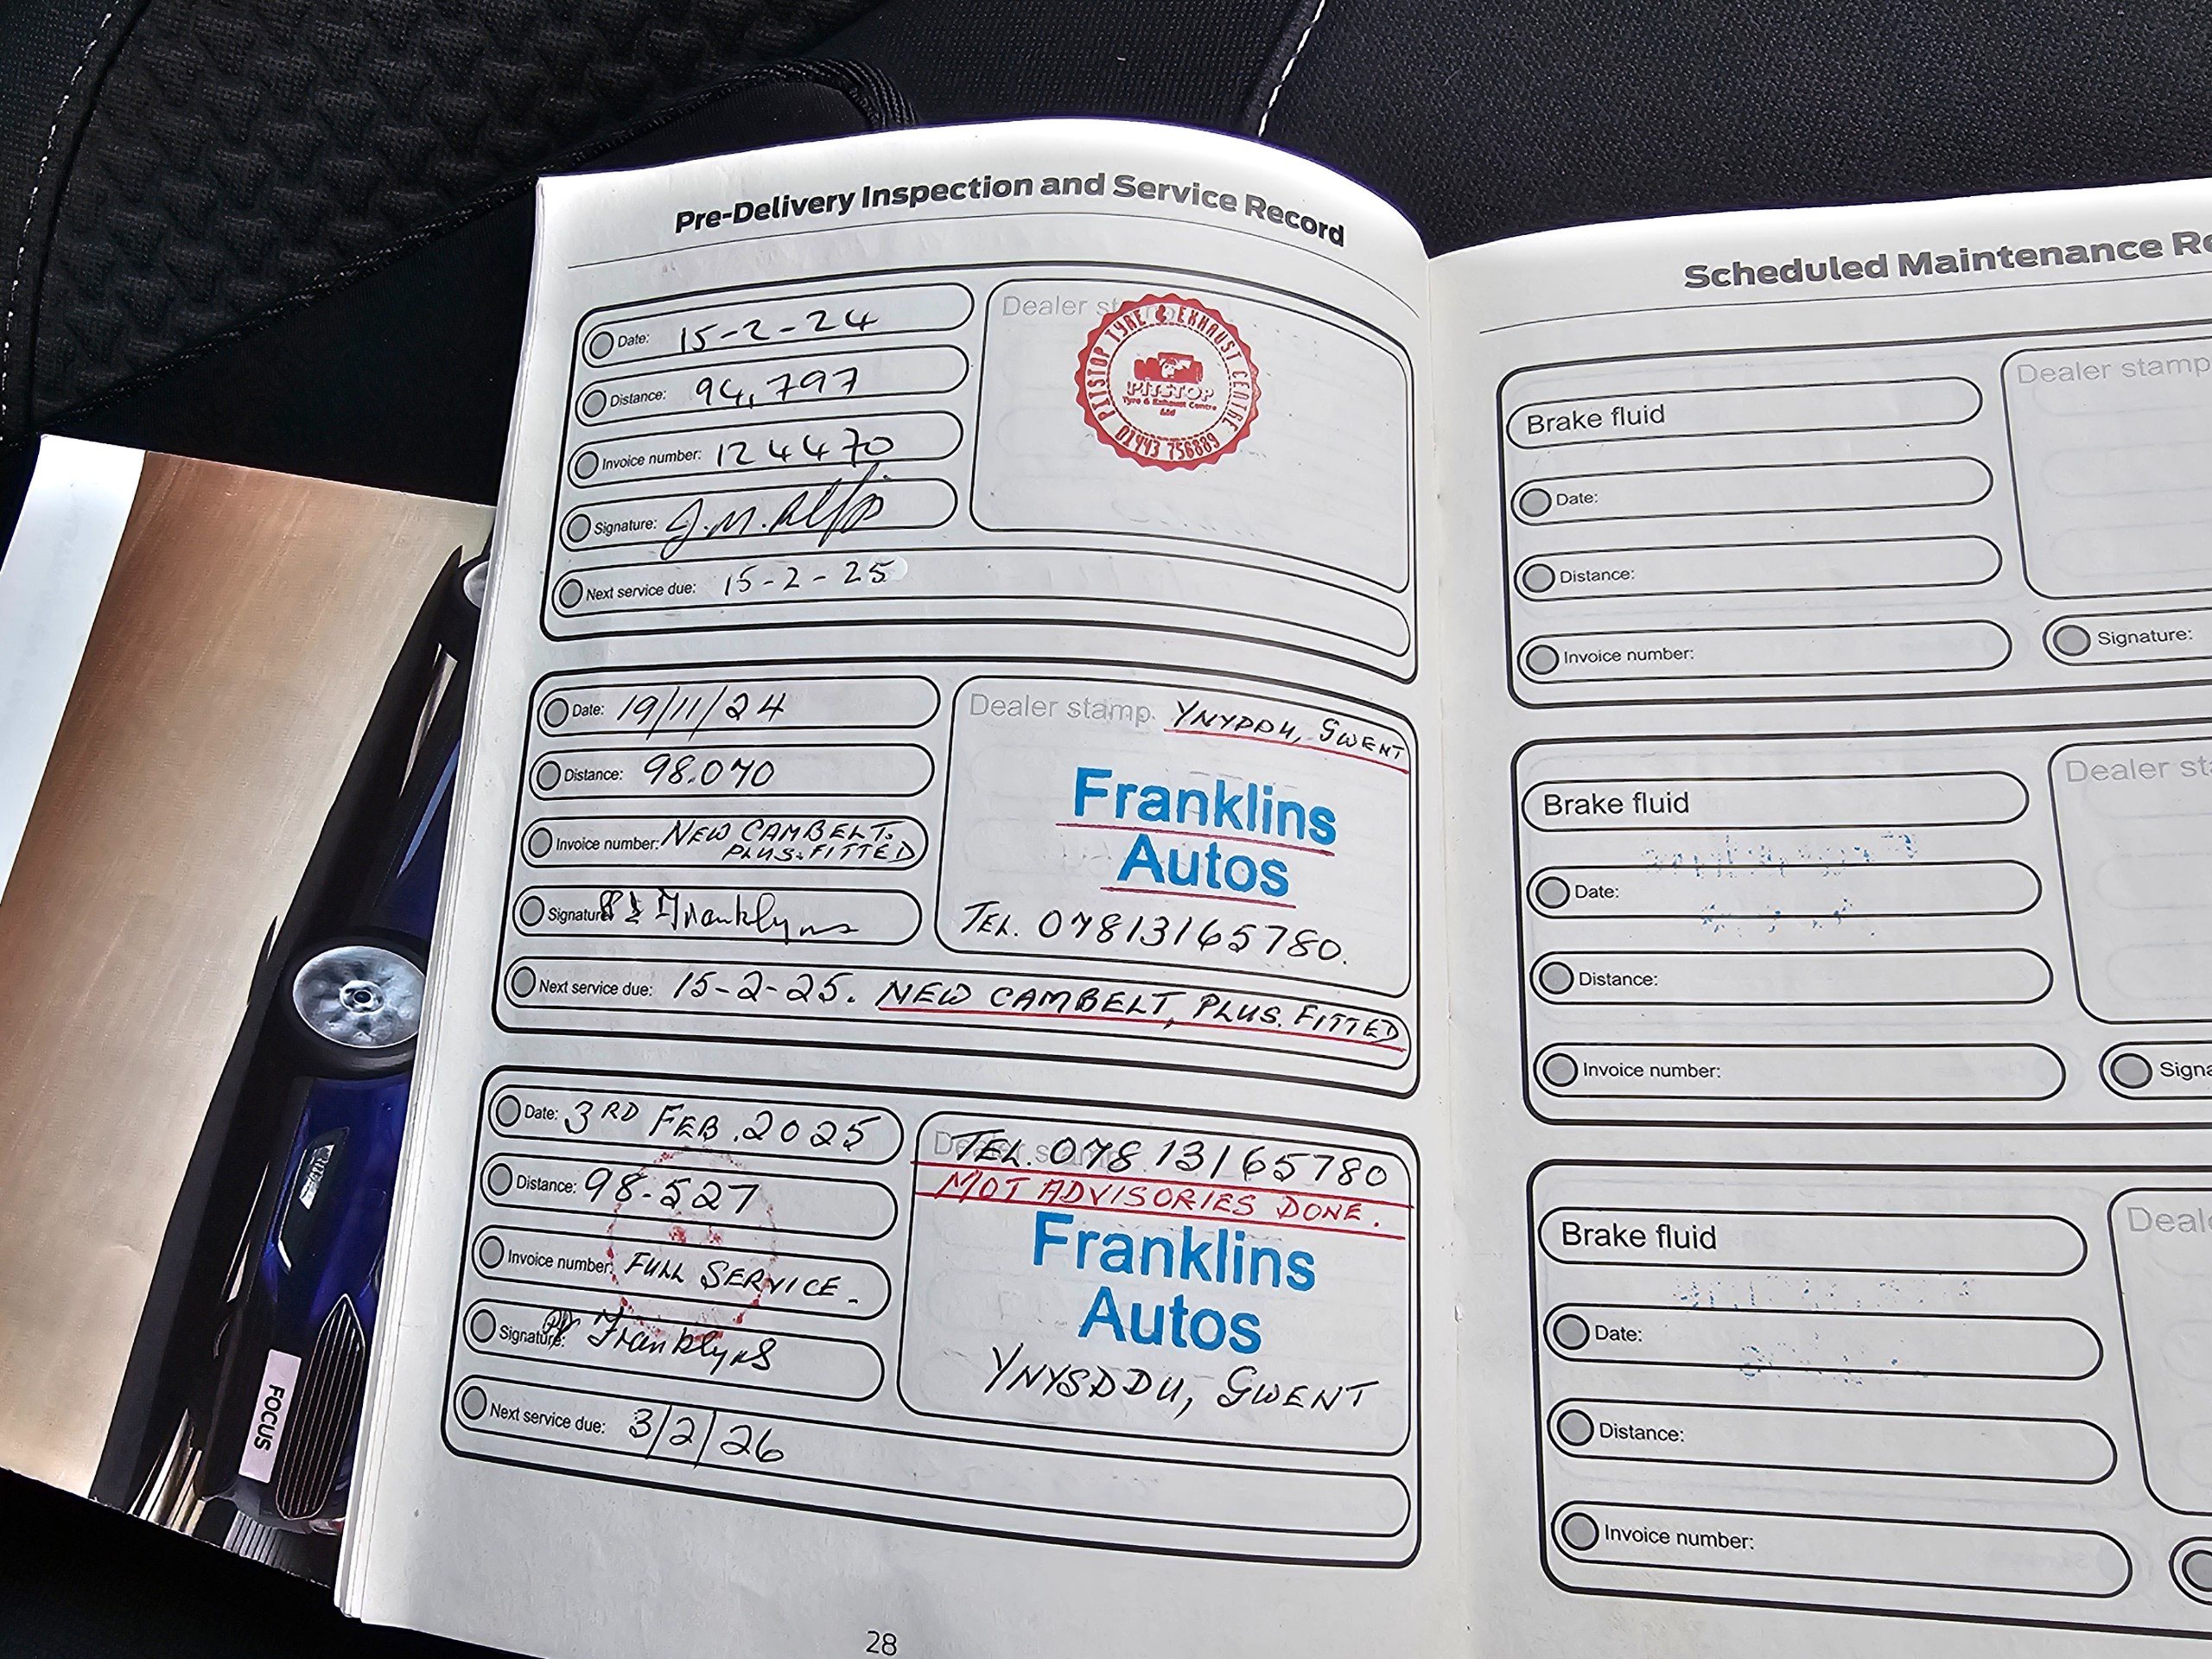 Pre-Delivery Inspection and Service Record
Date: 15-2-24
Distance: 94,797
Invoice number: 124470
Signature: J.M.
Next service due: 15-2-25
Dealer st
PITSTOP TYRE & EXHAUST CENTRE
PITSTOP
Tyre & Exhaust Centre
Ltd
01443 756889
Date: 19/11/24
Distance: 98.070
Invoice number: NEW CAMBELT.
PLUS. FITTED
Signature: Franklyns
Next service due: 15-2-25. NEW CAMBELT, PLUS. FITTED
Dealer stamp. YNYDDU, GWENT
Franklins
Autos
TEL. 07813165780.
Date: 3RD FEB. 2025
Distance: 98-527
Invoice number: FULL SERVICE.
Signature: Franklyns
Next service due: 3/2/26
Dealer stamp
TEL. 078 13165780
MOT ADVISORIES DONE.
Franklins
Autos
YNYSDDU, GWENT
28
FOCUS
Scheduled Maintenance Re
Brake fluid
Dealer stamp
Date:
Distance:
Invoice number:
Signature:
Brake fluid
Dealer sta
Date:
Distance:
Invoice number:
Signa
Brake fluid
Deal
Date:
Distance:
Invoice number: